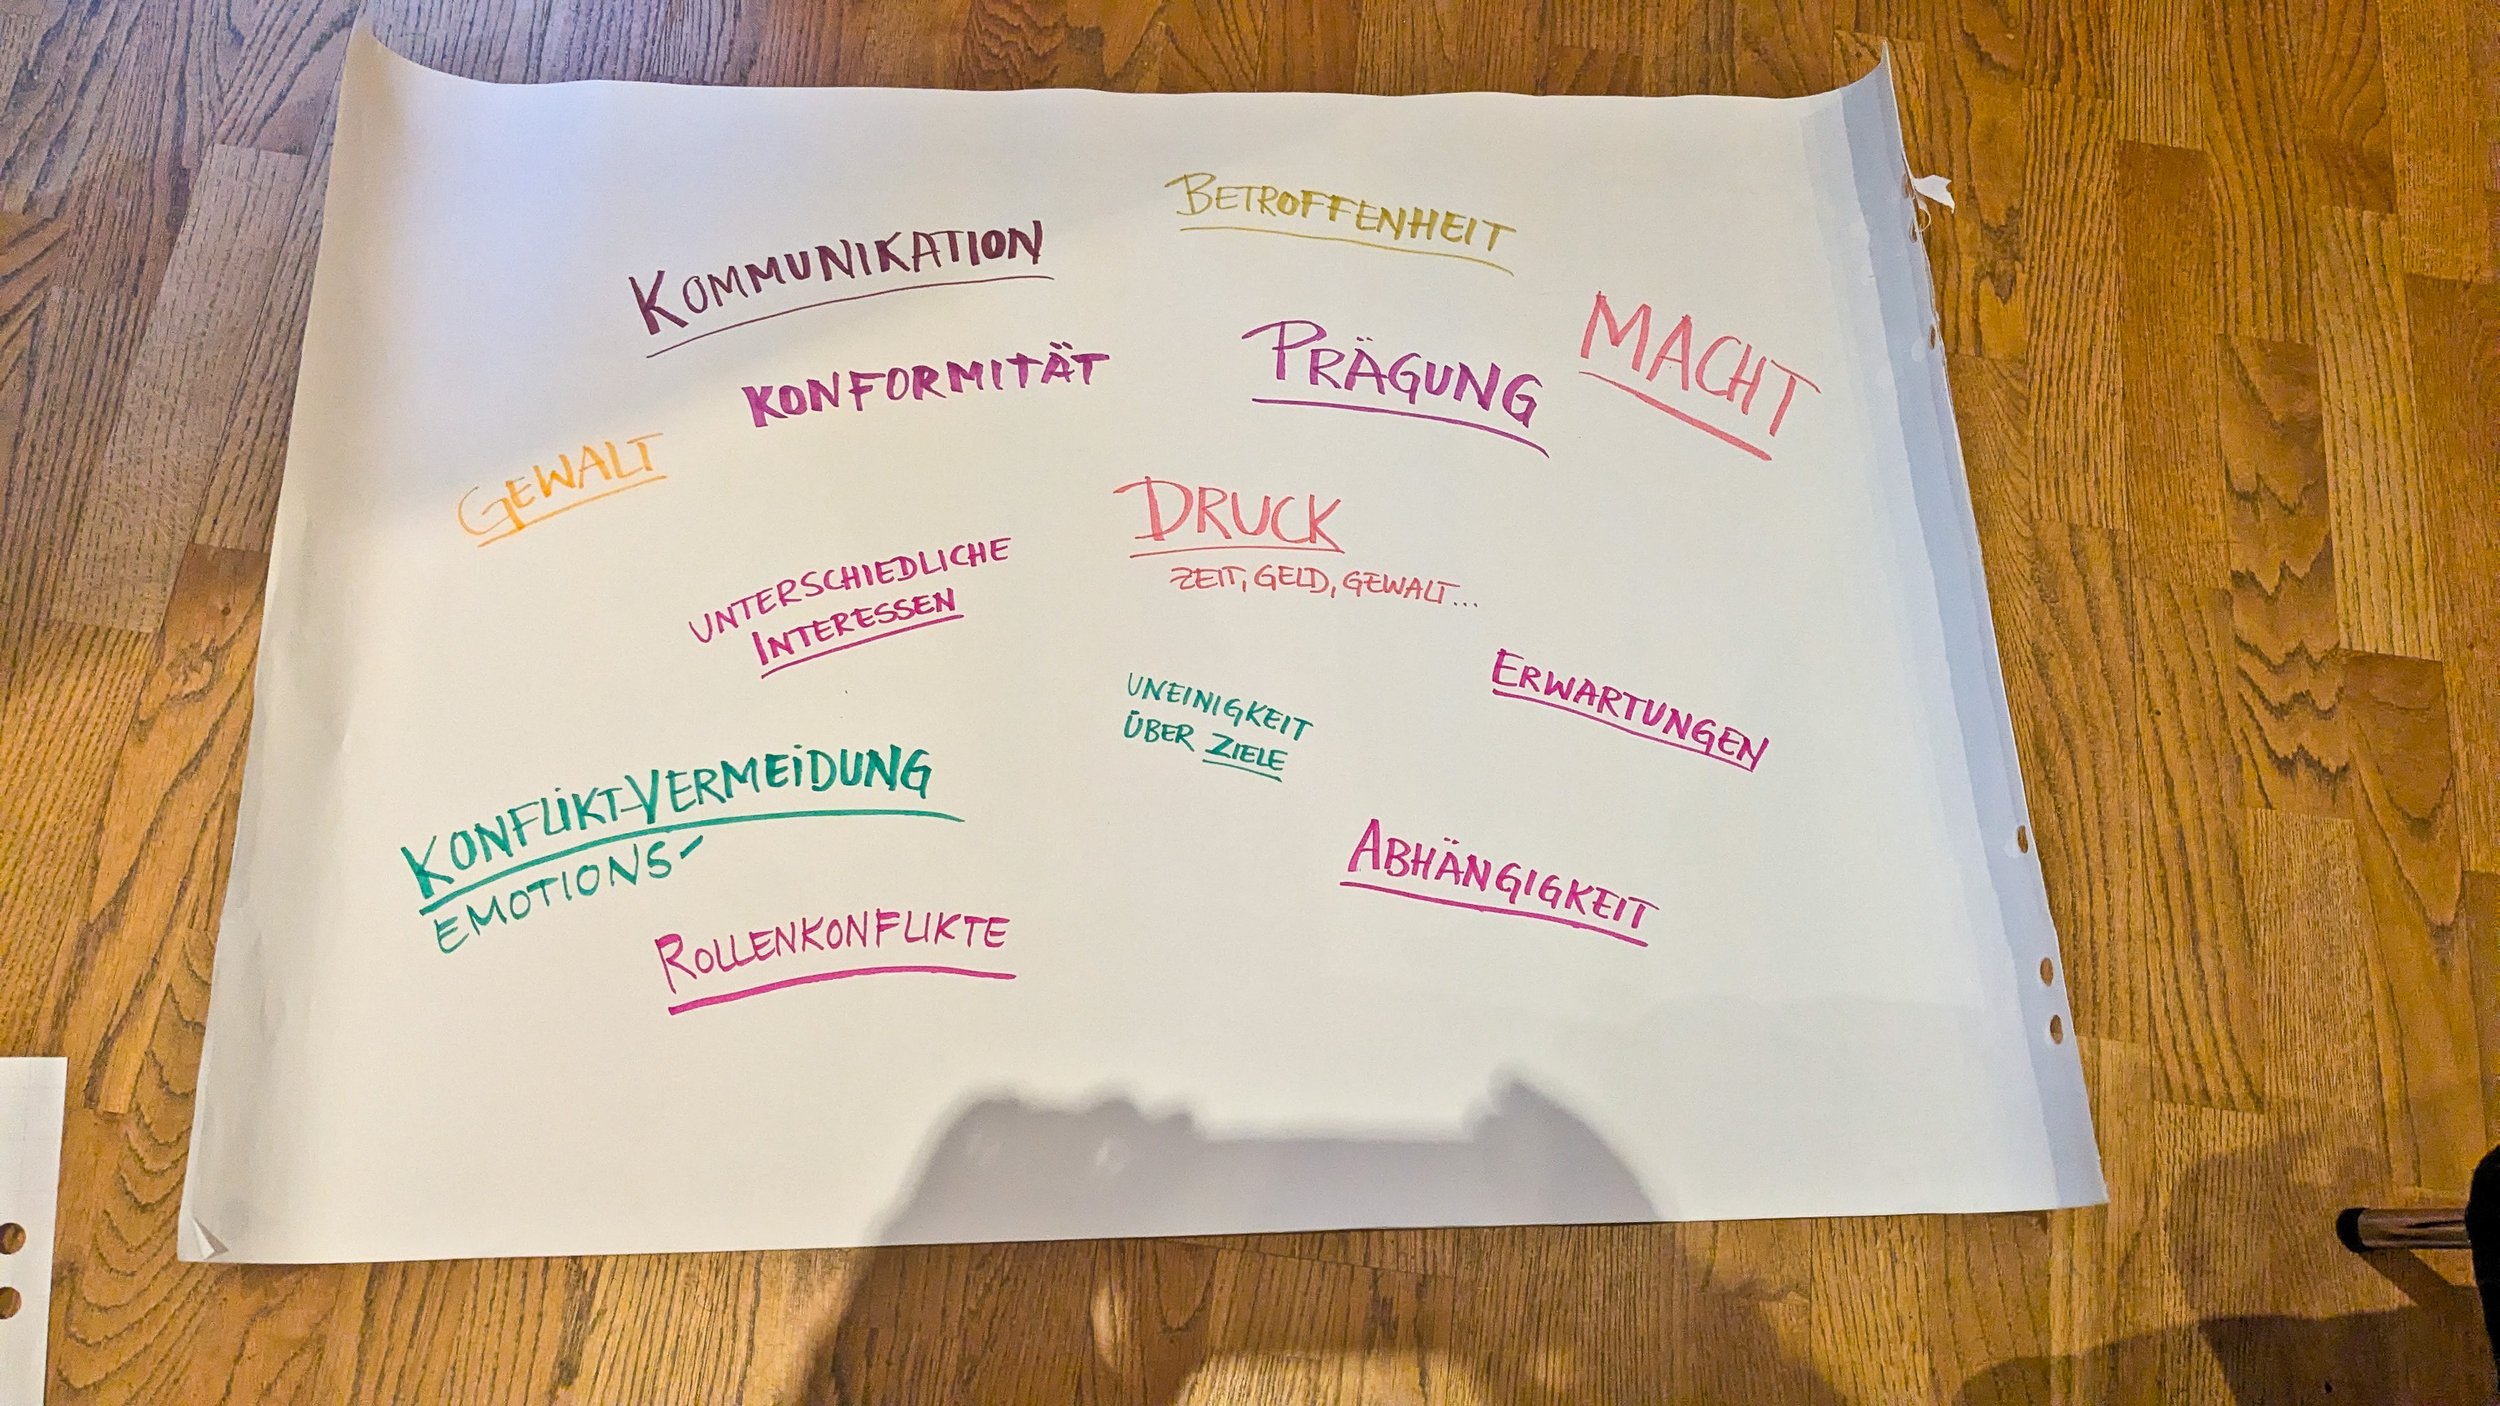 BETROFFENHEIT
KOMMUNIKATION
MACHT
PRÄGUNG
KONFORMITÄT
GEWALT
DRUCK
ZEIT, GELD, GEWALT...
UNTERSCHIEDLICHE
INTERESSEN
ERWARTUNGEN
UNEINIGKEIT
ÜBER ZIELE
KONFLIKT-VERMEIDUNG
EMOTIONS-
ABHÄNGIGKEIT
ROLLENKONFLIKTE